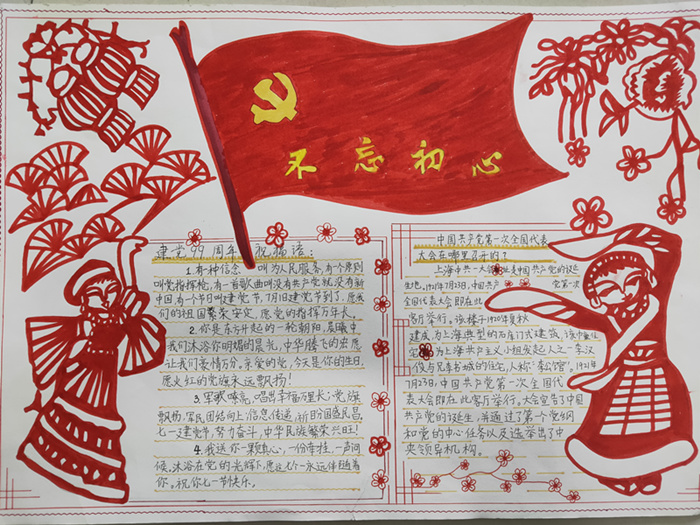 不忘初心
建党99周年祝福语:
1.有种信念 叫为人民服务,有个原则
叫党指挥枪,有一首歌曲叫没有共产党就没有新
中国,有个节日叫建党节,7月1日建党节到了,愿我
们的祖国繁荣安定,愿党的指挥万年长。
2.你是东方升起的一轮朝阳,晨曦中
我们沐浴你明媚的晨光,中华腾飞的宏愿
让我们豪情万分,亲爱的党,今天是你的生日,
愿火红的党旗永远飘扬!
3.军歌嘹亮,唱出幸福万里长;党旗
飘扬,军民团结向上,信息传递,祈盼国泰民昌,
七一建党节,努力奋斗,中华民族繁荣兴旺!
4.我送你一颗粗心,一份牵挂,一声问
候,沐浴在党的光辉下,愿这七个一永远伴随着
你。祝你七一节快乐。
中国共产党第一次全国代表
大会在哪里召开的?
上海中共一大会址是中国共产党的诞
生地,1921年7月23日,中国共产党第一次
全国代表大会即在此
客厅举行。该楼于1920年夏秋
建成,为上海典型的石库门式建筑,该中量住
宅为上海共产主义小组发起人之一李汉
俊与兄李书城的住宅,人称“李公馆”。1921年
7月23日,中国共产党第一次全国代
表大会即在此客厅举行。大会宣告了中国
共产党的诞生,并通过了第个党纲
和党的中心任务以及选举出了中
央领导机构。